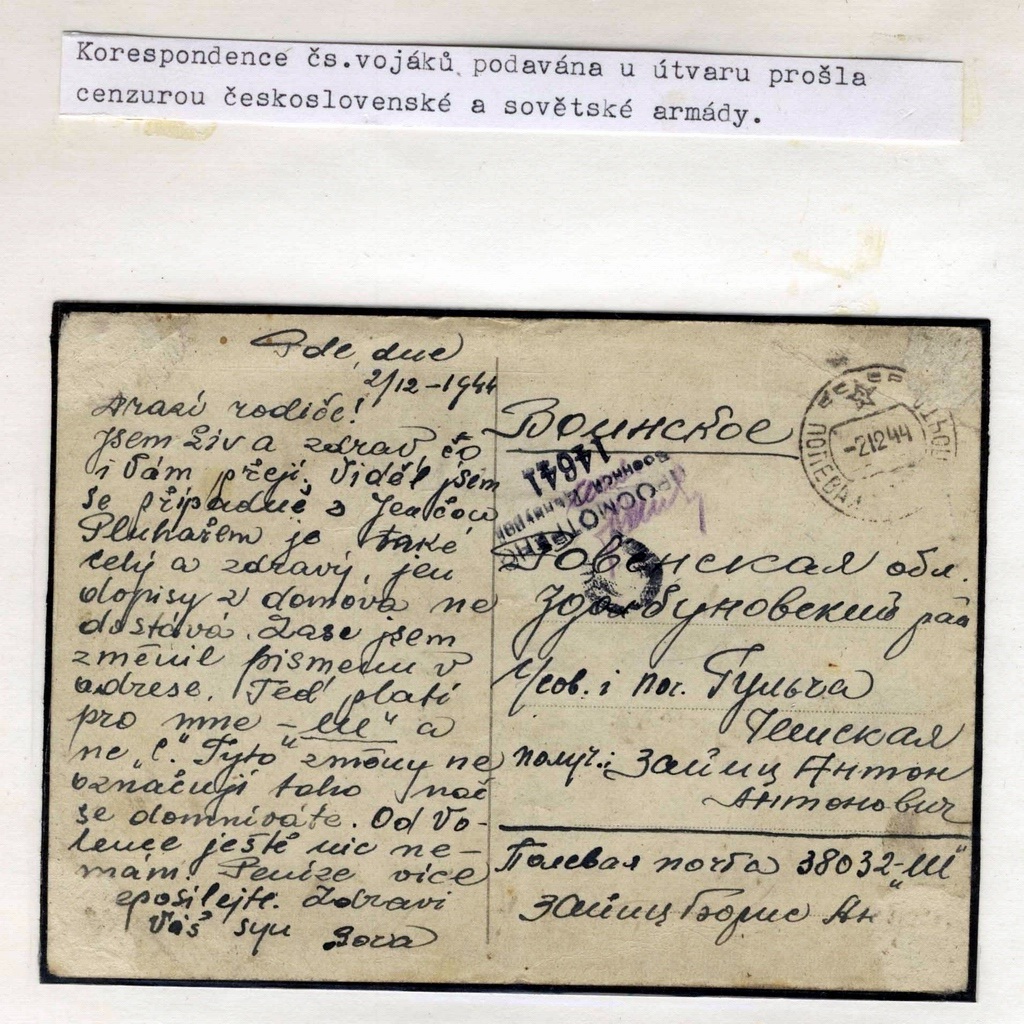 Korespondence čs.vojáků podavána u útvaru prošla
cenzurou československé a sovětské armády.
Pole, dne
2/12-1944
Drazí rodiče!
Jsem živ a zdráv, čo
i Vám přeji. Viděl jsem
se případně s Jenčovu
Pluhařem je také
celý a zdravý, jen
dopisy z domova ne
dostává. Zase jsem
změnil písmenu v
adrese. Teď platí
pro mne - "Ш" a
ne "С." Tyto změny ne
označují toho nač
se domníváte. Od Vo-
lence ještě nic ne-
mám. Peníze více
neposílejte. Zdraví
Váš syn Bova
Воинское
ПОЛЕВАЯ ПОЧТА
-21244
ПРОСМОТРЕНО
Военной Цензурой
14641
Ровенская обл.
Здолбуновский рай
с/сов. и пос. Гульча
Чешская
получ.: Займц Антон
Антонович
Полевая почта 38032-"Ш"
Займц Борис Ан